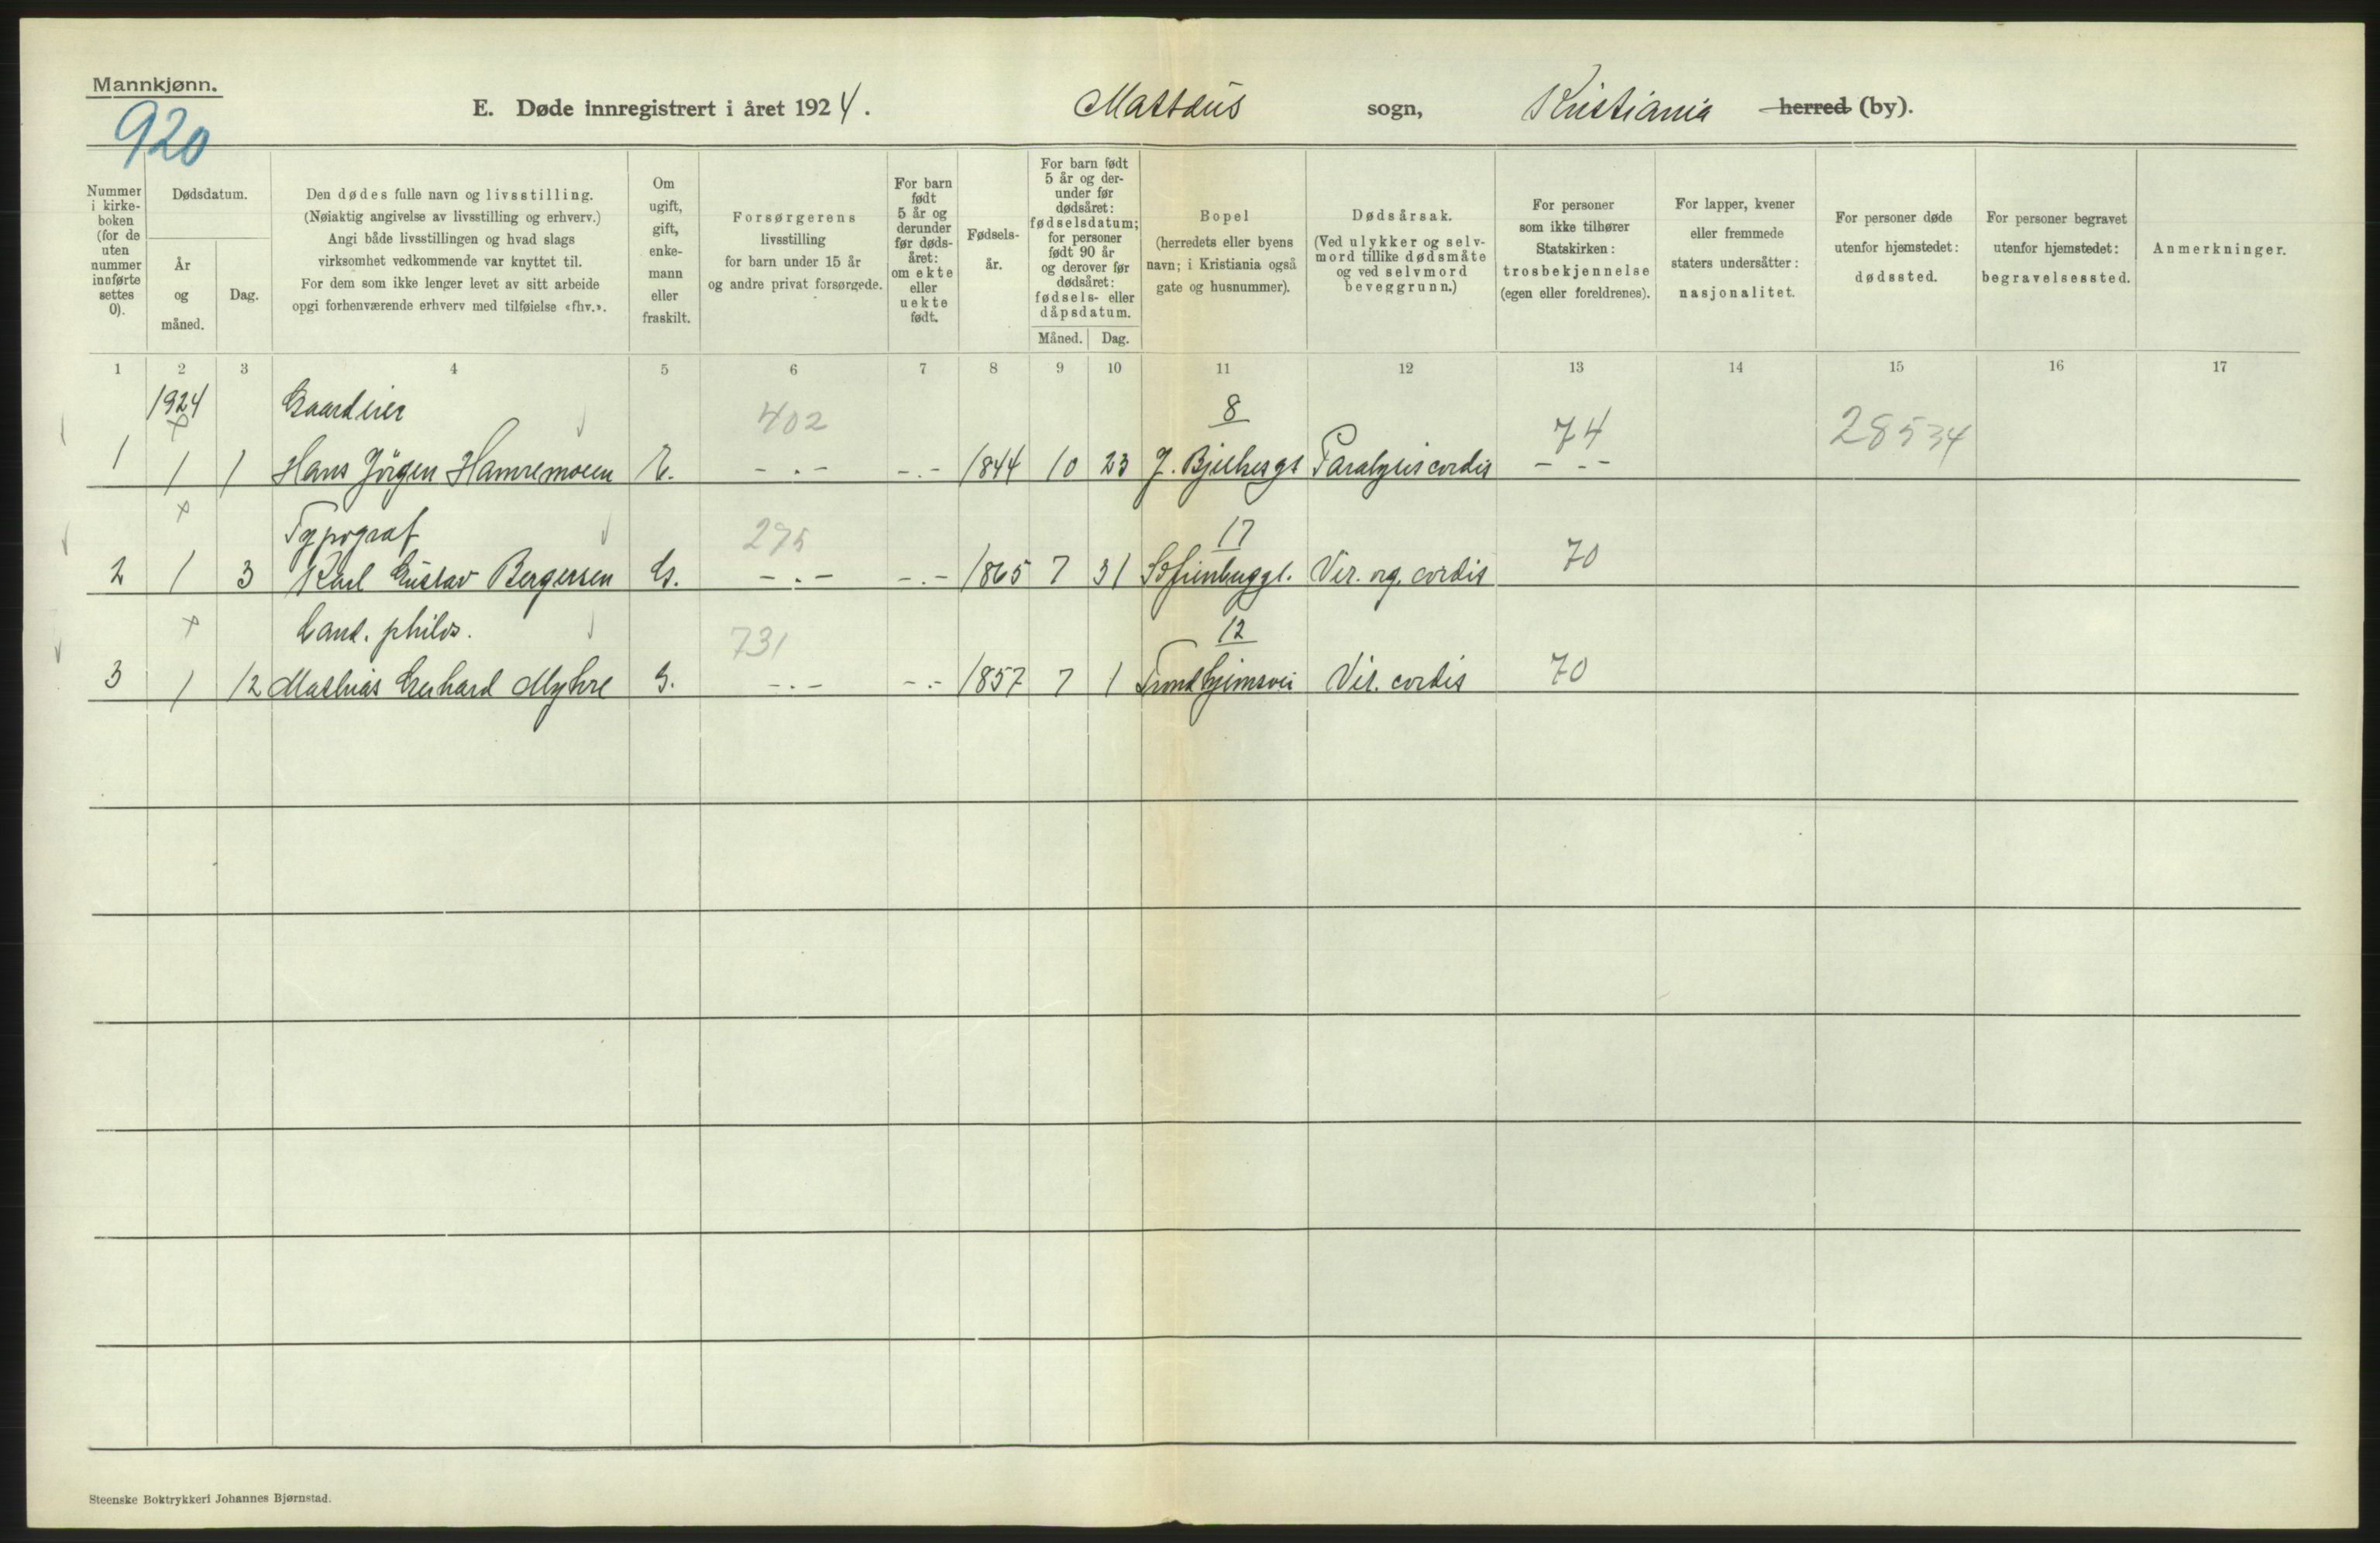 Mannkjønn.
920
E. Døde innregistrert i året 1924.
Mattæus sogn, Kristiania herred (by).
Nummer i kirke-boken (for de uten nummer innførte settes 0).
Dødsdatum.
År og måned.
Dag.
Den dødes fulle navn og livsstilling.
(Nøiaktig angivelse av livsstilling og erhverv.)
Angi både livsstillingen og hvad slags
virksomhet vedkommende var knyttet til.
For dem som ikke lenger levet av sitt arbeide
opgi forhenværende erhverv med tilføielse «fhv.».
Om ugift, gift, enke-mann eller fraskilt.
Forsørgerens livsstilling for barn under 15 år og andre privat forsørgede.
For barn født 5 år og derunder før døds-året: om ekte eller uekte født.
Fødsels-år.
For barn født 5 år og der-under før dødsåret: fødselsdatum; for personer født 90 år og derover før dødsåret: fødsels- eller dåpsdatum.
Måned. Dag.
Bopel (herredets eller byens navn; i Kristiania også gate og husnummer).
Dødsårsak. (Ved ulykker og selv-mord tillike dødsmåte og ved selvmord beveggrunn.)
For personer som ikke tilhører Statskirken: trosbekjennelse (egen eller foreldrenes).
For lapper, kvener eller fremmede staters undersåtter: nasjonalitet.
For personer døde utenfor hjemstedet: dødssted.
For personer begravet utenfor hjemstedet: begravelsessted.
Anmerkninger.
1 2 3 4 5 6 7 8 9 10 11 12 13 14 15 16 17
1924 Gaardeier 402 8 74 28534
1 1 1 Hans Jörgen Hamremoen E. -.- -.- 1844 10 23 J. Bjelkesgt Paralysis cordis -.-
Typograf 275 17
2 1 3 Karl Gustav Bergersen G. -.- -.- 1865 7 31 Sofienbuggt. Vit. org. cordis 70
Cand. philos. 731 12
3 1 12 Mathias Gerhard Myhre G. -.- -.- 1857 7 1 Trondhjemsvei Vit. cordis 70
Steenske Boktrykkeri Johannes Bjørnstad.